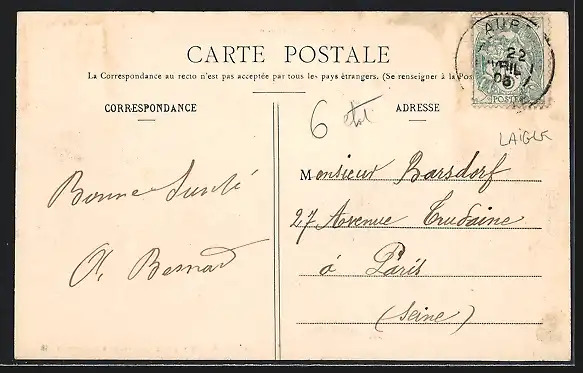 CARTE POSTALE
La Correspondance au recto n'est pas acceptée par tous les pays étrangers. (Se renseigner à la Pos
CORRESPONDANCE
ADRESSE
6
AUP
22
AVRIL
05
POSTES
LAIGLE
Monsieur Barsdorf
27 Avenue Trudaine
à Paris
(Seine)
Bonne Santé
Bernard